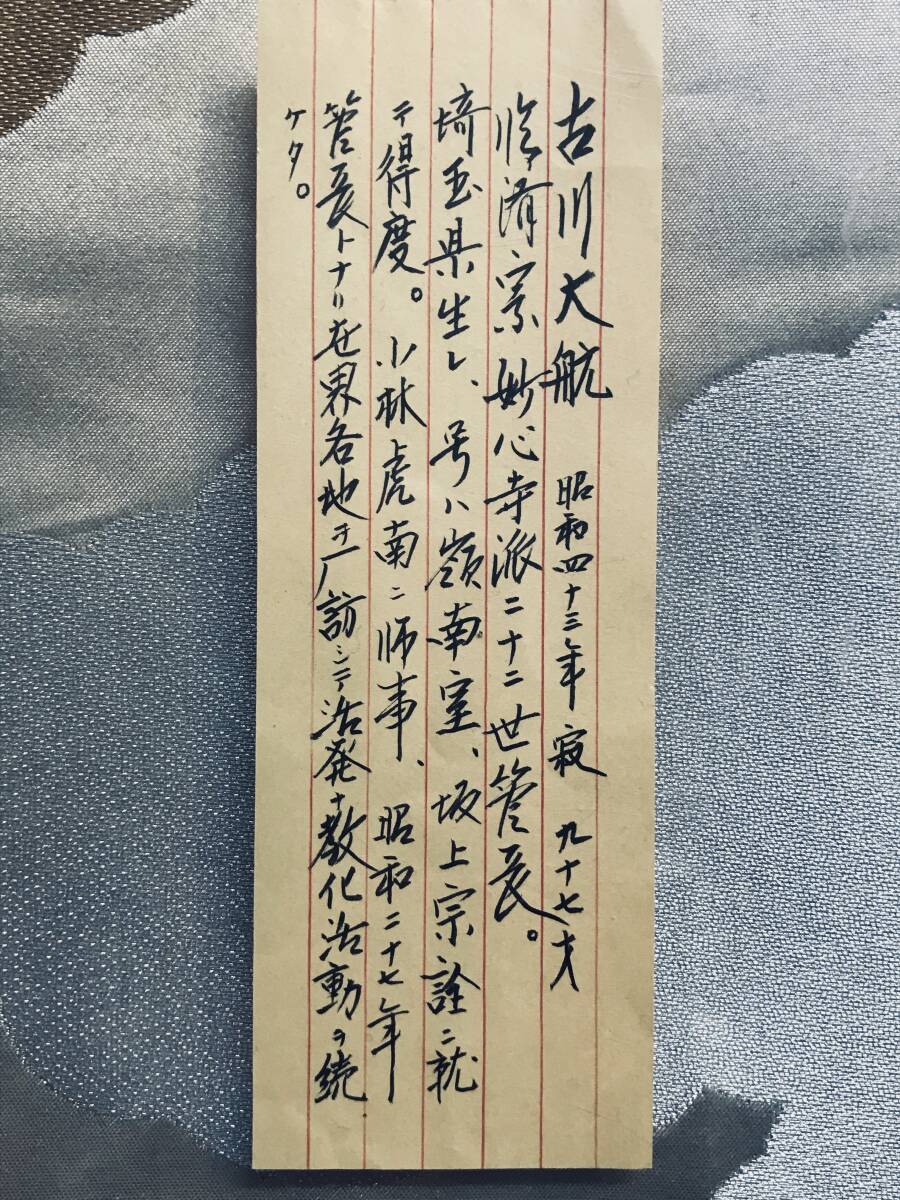 古川大航 昭和四十三年寂 九十七才
臨済宗妙心寺派二十二世管長。
埼玉県生レ、号ハ嶺南室、坂上宗詮ニ就
テ得度。小林虎南ニ師事、昭和二十七年
管長トナリ世界各地ヲ訪シテ活発ナ教化活動ヲ続
ケタ。